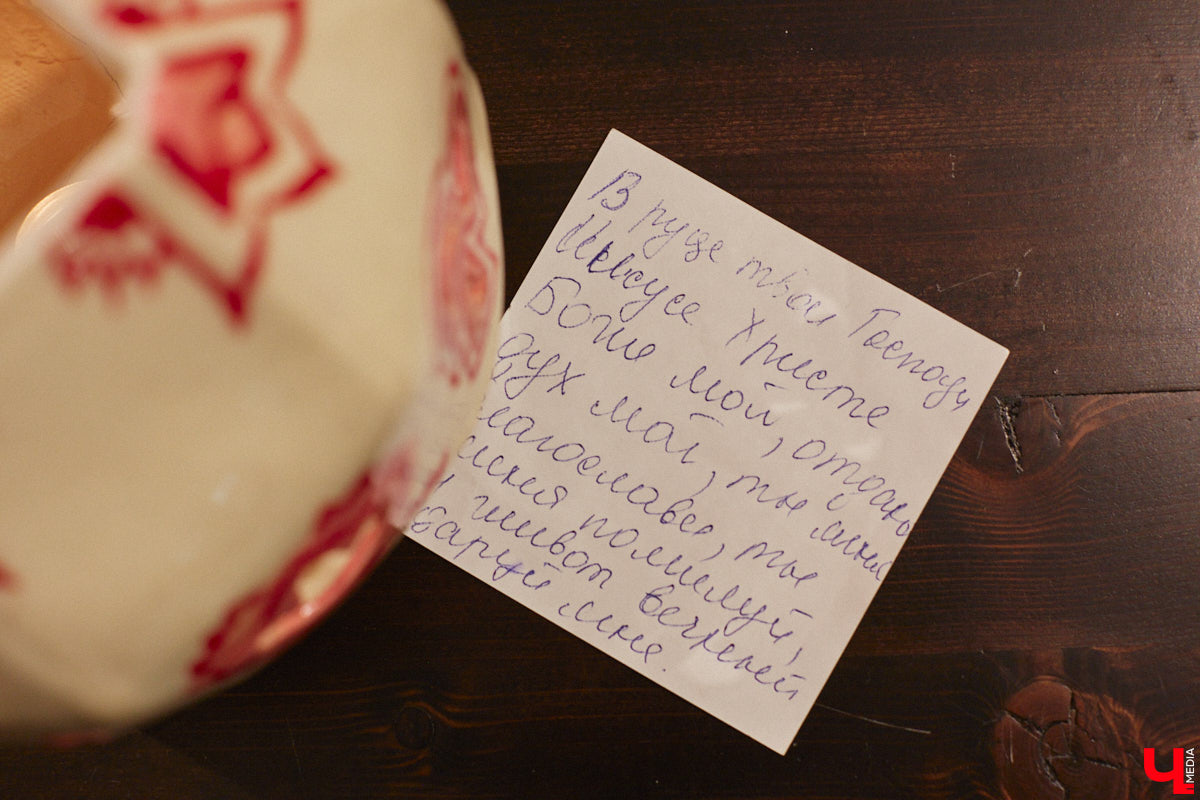 В руце твои Господи
Иисусе Христе
Боже мой, отдаю
дух мой, ты мене
лагослави, ты
меня помилуй,
и живот вечный
даруй мне.
Ч MEDIA